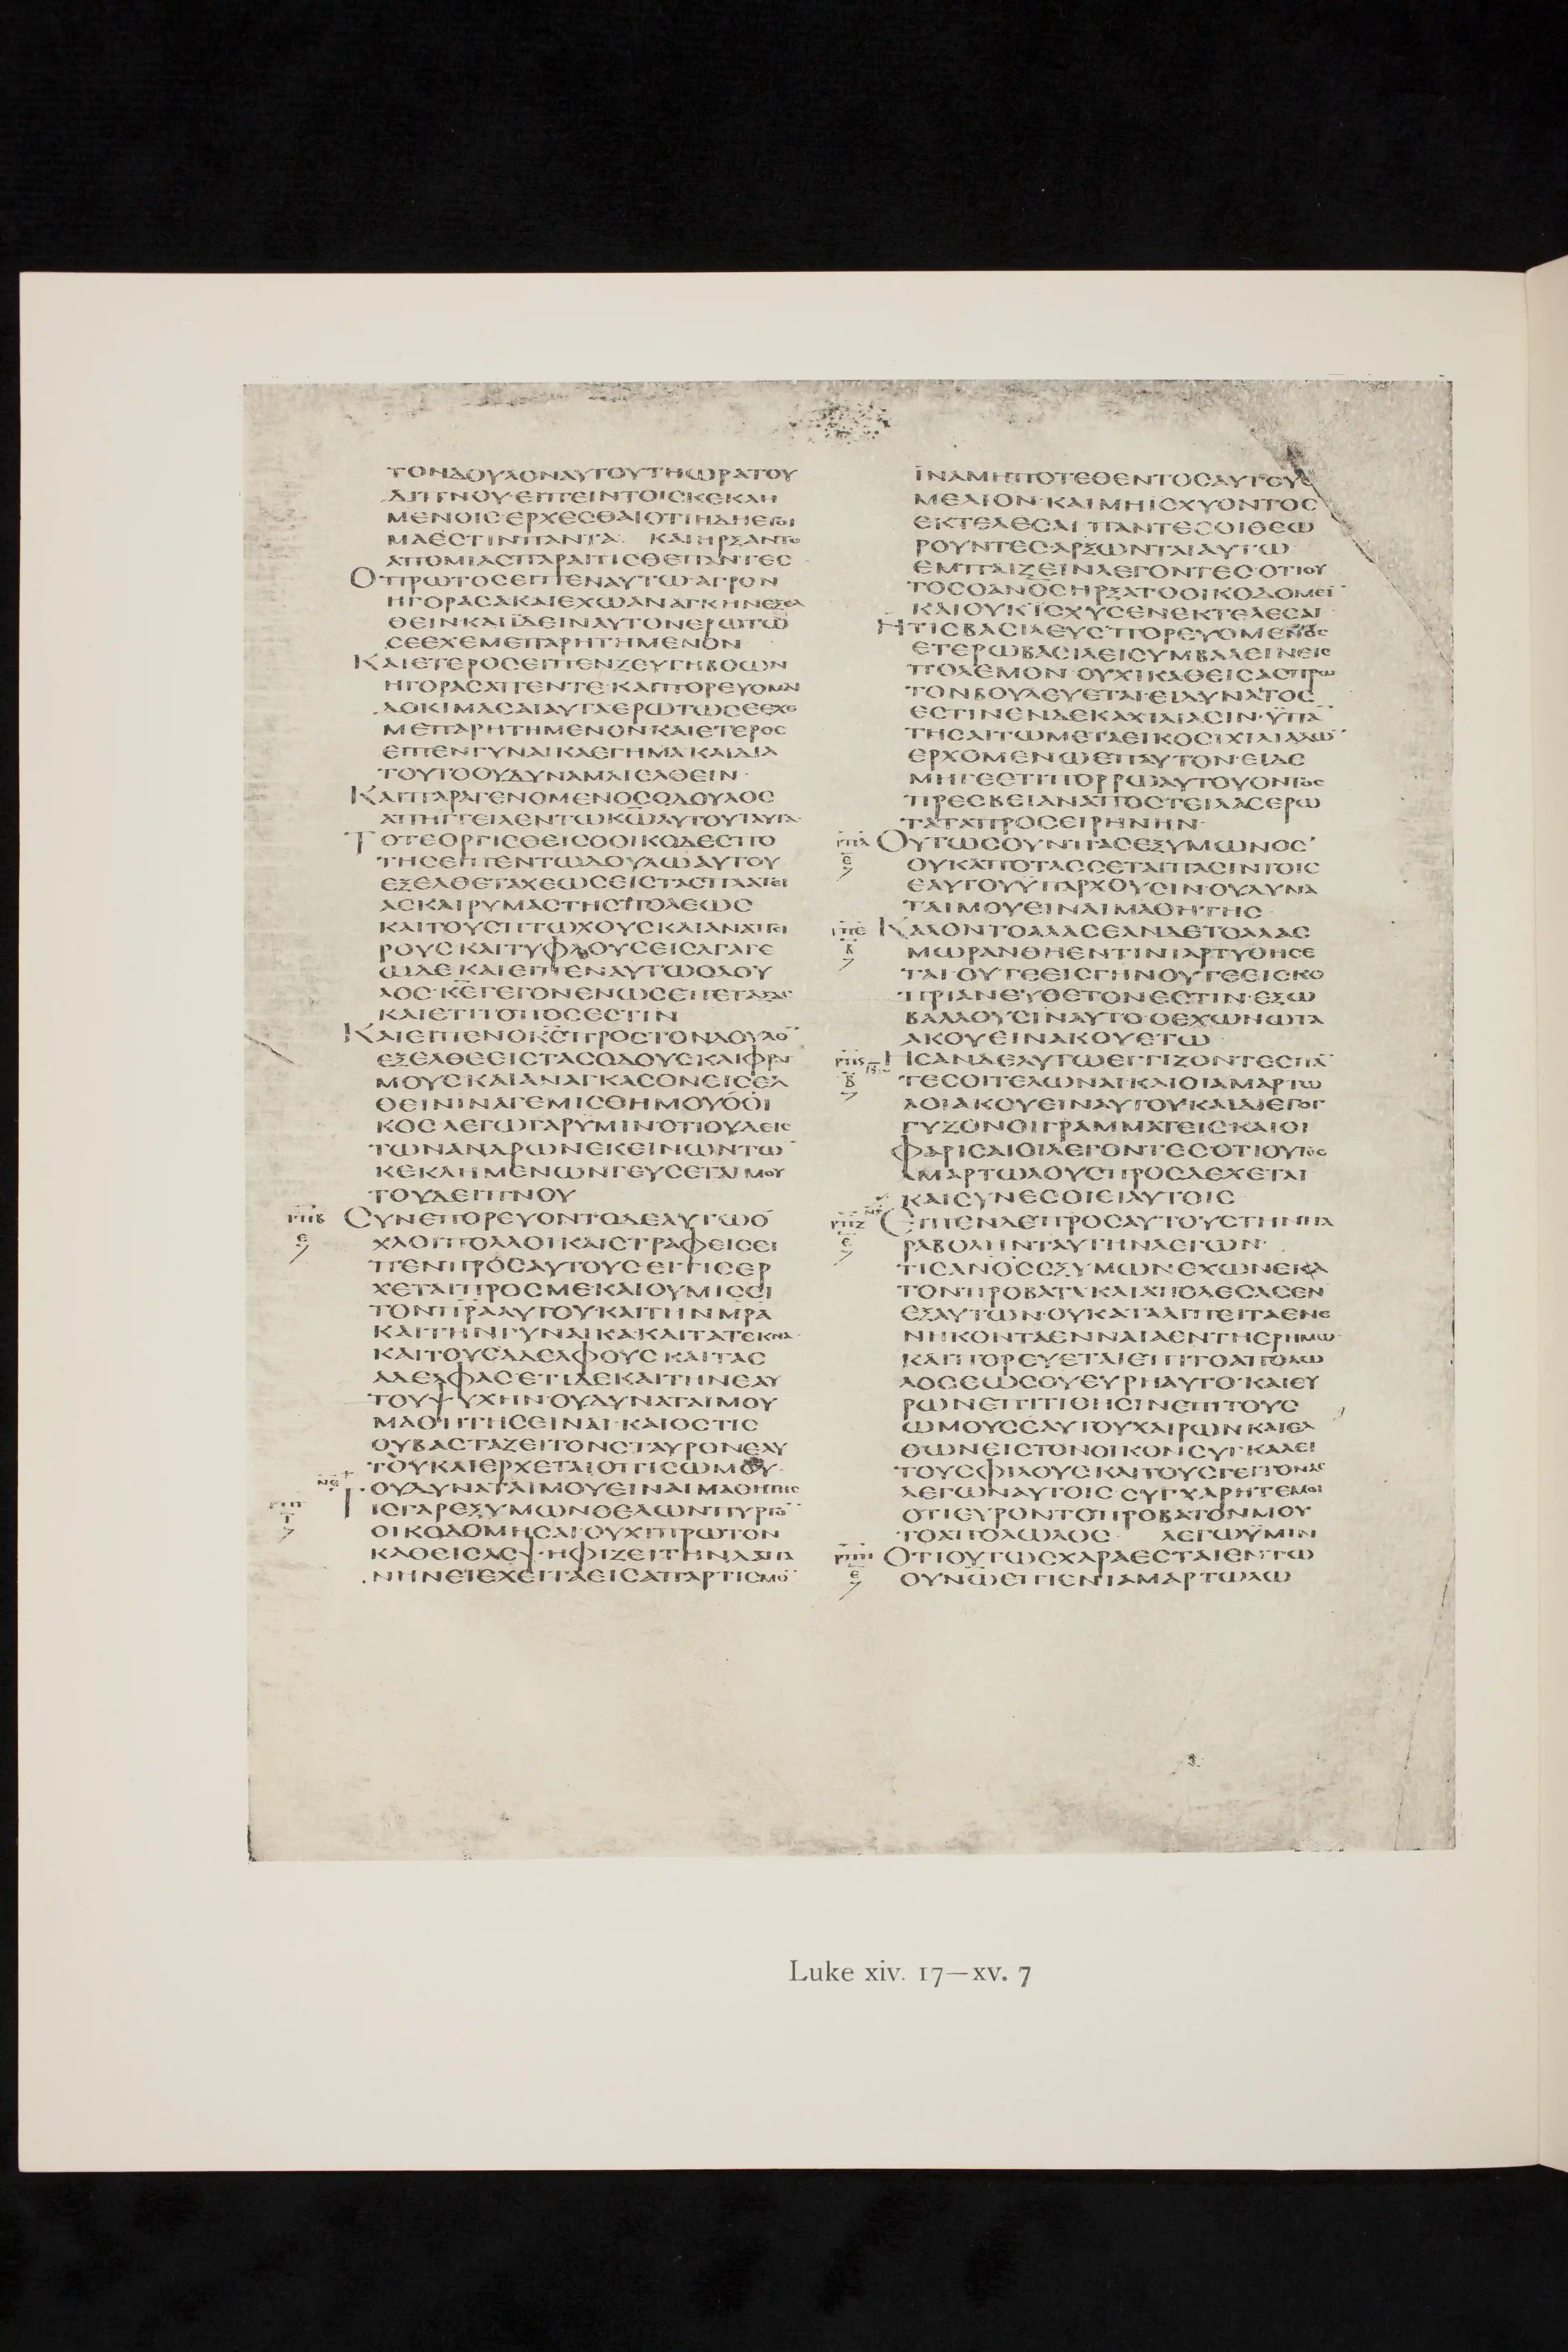 ΤΟΝΔΟΥΛΟΝΑΥΤΟΥΤΗΩΡΑΤΟΥ
ΔΙΠΝΟΥ·ΕΙΠΕΙΝΤΟΙΣΚΕΚΛΗ
ΜΕΝΟΙΣ·ΕΡΧΕΣΘΑΙΟΤΙΗΔΗΕΤΟΙ
ΜΑΕΣΤΙΝΠΑΝΤΑ· ΚΑΙΗΡΞΑΝΤΟ
ΑΠΟΜΙΑΣΠΑΡΑΙΤΙΣΘΕΠΑΝΤΕΣ
ΟΠΡΩΤΟΣΕΙΠΕΝΑΥΤΩ·ΑΓΡΟΝ
ΗΓΟΡΑΣΑΚΑΙΕΧΩΑΝΑΓΚΗΝΕΞΕΛ
ΘΕΙΝΚΑΙΪΔΕΙΝΑΥΤΟΝΕΡΩΤΩ
ΣΕΕΧΕΜΕΠΑΡΗΤΗΜΕΝΟΝ
ΚΑΙΕΤΕΡΟΣΕΙΠΕΝΖΕΥΓΗΒΟΩΝ
ΗΓΟΡΑΣΑΠΕΝΤΕ·ΚΑΙΠΟΡΕΥΟΜΑΙ
ΔΟΚΙΜΑΣΑΙΑΥΤΑΕΡΩΤΩΣΕΕΧΕ
ΜΕΠΑΡΗΤΗΜΕΝΟΝΚΑΙΕΤΕΡΟΣ
ΕΙΠΕΝΓΥΝΑΙΚΑΕΓΗΜΑΚΑΙΔΙΑ
ΤΟΥΤΟΟΥΔΥΝΑΜΑΙΕΛΘΕΙΝ·
ΚΑΙΠΑΡΑΓΕΝΟΜΕΝΟΣΟΔΟΥΛΟΣ
ΑΠΗΓΓΕΙΛΕΝΤΩΚΩ̅ΑΥΤΟΥΤΑΥΤΑ·
ΤΟΤΕΟΡΓΙΣΘΕΙΣΟΟΙΚΟΔΕΣΠΟ
ΤΗΣΕΙΠΕΝΤΩΔΟΥΛΩΑΥΤΟΥ
ΕΞΕΛΘΕΤΑΧΕΩΣΕΙΣΤΑΣΠΛΑΤΕΙ
ΑΣΚΑΙΡΥΜΑΣΤΗΣΠΟΛΕΩΣ
ΚΑΙΤΟΥΣΠΤΩΧΟΥΣΚΑΙΑΝΑΠΕΙ
ΡΟΥΣΚΑΙΤΥΦΛΟΥΣΕΙΣΑΓΑΓΕ
ΩΔΕΚΑΙΕΙΠΕΝΑΥΤΩΟΔΟΥ
ΛΟΣ·ΚΕ̅ΓΕΓΟΝΕΝΩΣΕΠΕΤΑΞΑΣ
ΚΑΙΕΤΙΤΟΠΟΣΕΣΤΙΝ
ΚΑΙΕΙΠΕΝΟΚΣ̅ΠΡΟΣΤΟΝΔΟΥΛΟ̅
ΕΞΕΛΘΕΕΙΣΤΑΣΟΔΟΥΣΚΑΙΦΡΑΓ
ΜΟΥΣΚΑΙΑΝΑΓΚΑΣΟΝΕΙΣΕΛ
ΘΕΙΝΙΝΑΓΕΜΙΣΘΗΜΟΥΟΟΙ
ΚΟΣΛΕΓΩΓΑΡΥΜΙΝΟΤΙΟΥΔΕΙΣ
ΤΩΝΑΝΔΡΩΝΕΚΕΙΝΩΝΤΩ̅
ΚΕΚΛΗΜΕΝΩΝΓΕΥΣΕΤΑΙΜΟΥ
ΤΟΥΔΕΙΠΝΟΥ
ΡΠΒ ΣΥΝΕΠΟΡΕΥΟΝΤΟΔΕΑΥΤΩΟ
Ε ΧΛΟΙΠΟΛΛΟΙΚΑΙΣΤΡΑΦΕΙΣΕΙ
ΠΕΝΠΡΟΣΑΥΤΟΥΣΕΙΤΙΣΕΡ
ΧΕΤΑΙΠΡΟΣΜΕΚΑΙΟΥΜΙΣΕΙ
ΤΟΝΠΡ̅ΑΑΥΤΟΥΚΑΙΤΗΝΜΡ̅Α
ΚΑΙΤΗΝΓΥΝΑΙΚΑΚΑΙΤΑΤΕΚΝΑ·
ΚΑΙΤΟΥΣΑΔΕΛΦΟΥΣΚΑΙΤΑΣ
ΑΔΕΛΦΑΣΕΤΙΔΕΚΑΙΤΗΝΕΑΥ
ΤΟΥΨΥΧΗΝ·ΟΥΔΥΝΑΤΑΙΜΟΥ
ΜΑΘΗΤΗΣΕΙΝΑΙ·ΚΑΙΟΣΤΙΣ
ΟΥΒΑΣΤΑΖΕΙΤΟΝΣΤΑΥΡΟΝΕΑΥ
ΤΟΥΚΑΙΕΡΧΕΤΑΙΟΠΙΣΩΜΟΥ·
ΟΥΔΥΝΑΤΑΙΜΟΥΕΙΝΑΙΜΑΘΗΤΗΣ
ΡΠΓ ΤΙΣΓΑΡΕΞΥΜΩΝΟΘΕΛΩΝΠΥΡΓΟ̅
Ι ΟΙΚΟΔΟΜΗΣΑΙΟΥΧΙΠΡΩΤΟΝ
ΚΑΘΕΙΣΑΣΨΗΦΙΖΕΙΤΗΝΔΑΠΑ
ΝΗΝΕΙΕΧΕΙΤΑΕΙΣΑΠΑΡΤΙΣΜΟ̅
ΪΝΑΜΗΠΟΤΕΘΕΝΤΟΣΑΥΤΟΥΘΕ
ΜΕΛΙΟΝ·ΚΑΙΜΗΙΣΧΥΟΝΤΟΣ
ΕΚΤΕΛΕΣΑΙΠΑΝΤΕΣΟΙΘΕΩ
ΡΟΥΝΤΕΣΑΡΞΩΝΤΑΙΑΥΤΩ
ΕΜΠΑΙΖΕΙΝΛΕΓΟΝΤΕΣ·ΟΤΙΟΥ
ΤΟΣΟΑΝΟ̅ΣΗΡΞΑΤΟΟΙΚΟΔΟΜΕΙ̅
ΚΑΙΟΥΚΙΣΧΥΣΕΝΕΚΤΕΛΕΣΑΙ
ΗΤΙΣΒΑΣΙΛΕΥΣΠΟΡΕΥΟΜΕΝΟΣ
ΕΤΕΡΩΒΑΣΙΛΕΙΣΥΜΒΑΛΕΙΝΕΙΣ
ΠΟΛΕΜΟΝ·ΟΥΧΙΚΑΘΕΙΣΑΣΠΡΩ
ΤΟΝΒΟΥΛΕΥΕΤΑΙ·ΕΙΔΥΝΑΤΟΣ
ΕΣΤΙΝΕΝΔΕΚΑΧΙΛΙΑΣΙΝ·ΫΠΑ̅
ΤΗΣΑΙΤΩΜΕΤΑΕΙΚΟΣΙΧΙΛΙΑΔΩ̅
ΕΡΧΟΜΕΝΩΕΠΑΥΤΟΝ·ΕΙΔΕ
ΜΗΓΕΕΤΙΠΟΡΡΩΑΥΤΟΥΟΝΤΟΣ
ΠΡΕΣΒΕΙΑΝΑΠΟΣΤΕΙΛΑΣΕΡΩ
ΤΑΤΑΠΡΟΣΕΙΡΗΝΗΝ·
ΡΠΔ ΟΥΤΩΣΟΥΝΠΑΣΕΞΥΜΩΝΟΣ
Ε ΟΥΚΑΠΟΤΑΣΣΕΤΑΙΠΑΣΙΝΤΟΙΣ
ΕΑΥΤΟΥΫΠΑΡΧΟΥΣΙΝ·ΟΥΔΥΝΑ
ΤΑΙΜΟΥΕΙΝΑΙΜΑΘΗΤΗΣ·
ΡΠΕ ΚΑΛΟΝΤΟΑΛΑΣΕΑΝΔΕΤΟΑΛΑΣ
Β ΜΩΡΑΝΘΗΕΝΤΙΝΙΑΡΤΥΘΗΣΕ
ΤΑΙ·ΟΥΤΕΕΙΣΓΗΝΟΥΤΕΕΙΣΚΟ
ΠΡΙΑΝΕΥΘΕΤΟΝΕΣΤΙΝ·ΕΞΩ
ΒΑΛΛΟΥΣΙΝΑΥΤΟ·ΟΕΧΩΝΩΤΑ
ΑΚΟΥΕΙΝΑΚΟΥΕΤΩ·
ΡΠϚ ΗΣΑΝΔΕΑΥΤΩΕΓΓΙΖΟΝΤΕΣΠΑ̅
Β ΤΕΣΟΙΤΕΛΩΝΑΙΚΑΙΟΙΑΜΑΡΤΩ
ΛΟΙΑΚΟΥΕΙΝΑΥΤΟΥΚΑΙΔΙΕΓΟΓ
ΓΥΖΟΝΟΙΓΡΑΜΜΑΤΕΙΣΚΑΙΟΙ
ΦΑΡΙΣΑΙΟΙΛΕΓΟΝΤΕΣΟΤΙΟΥΤΟΣ
ΑΜΑΡΤΩΛΟΥΣΠΡΟΣΔΕΧΕΤΑΙ
ΚΑΙΣΥΝΕΣΘΙΕΙΑΥΤΟΙΣ
ΡΠΖ ΕΙΠΕΝΔΕΠΡΟΣΑΥΤΟΥΣΤΗΝΠΑ
Ε ΡΑΒΟΛΗΝΤΑΥΤΗΝΛΕΓΩΝ·
ΤΙΣΑΝΟ̅ΣΕΞΥΜΩΝΕΧΩΝΕΚΑ
ΤΟΝΠΡΟΒΑΤΑ·ΚΑΙΑΠΟΛΕΣΑΣΕΝ
ΕΞΑΥΤΩΝ·ΟΥΚΑΤΑΛΙΠΕΙΤΑΕΝΕ
ΝΗΚΟΝΤΑΕΝΝΑΙΑΕΝΤΗΕΡΗΜΩ·
ΚΑΙΠΟΡΕΥΕΤΑΙΕΠΙΤΟΑΠΟΛΩ
ΛΟΣΕΩΣΟΥΕΥΡΗΑΥΤΟ·ΚΑΙΕΥ
ΡΩΝΕΠΙΤΙΘΗΣΙΝΕΠΙΤΟΥΣ
ΩΜΟΥΣΕΑΥΤΟΥΧΑΙΡΩΝΚΑΙΕΛ
ΘΩΝΕΙΣΤΟΝΟΙΚΟΝΣΥΓΚΑΛΕΙ
ΤΟΥΣΦΙΛΟΥΣΚΑΙΤΟΥΣΓΕΙΤΟΝΑΣ
ΛΕΓΩΝΑΥΤΟΙΣ·ΣΥΓΧΑΡΗΤΕΜΟΙ
ΟΤΙΕΥΡΟΝΤΟΠΡΟΒΑΤΟΝΜΟΥ
ΤΟΑΠΟΛΩΛΟΣ· ΛΕΓΩΫΜΙΝ
ΡΠΗ ΟΤΙΟΥΤΩΣΧΑΡΑΕΣΤΑΙΕΝΤΩ
Ε ΟΥΝΩ̅ΕΠΙΕΝΙΑΜΑΡΤΩΛΩ
Luke xiv. 17—xv. 7